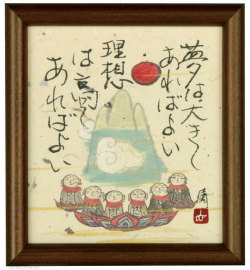 夢は大きく
あればよい
理想
は高く
あればよい